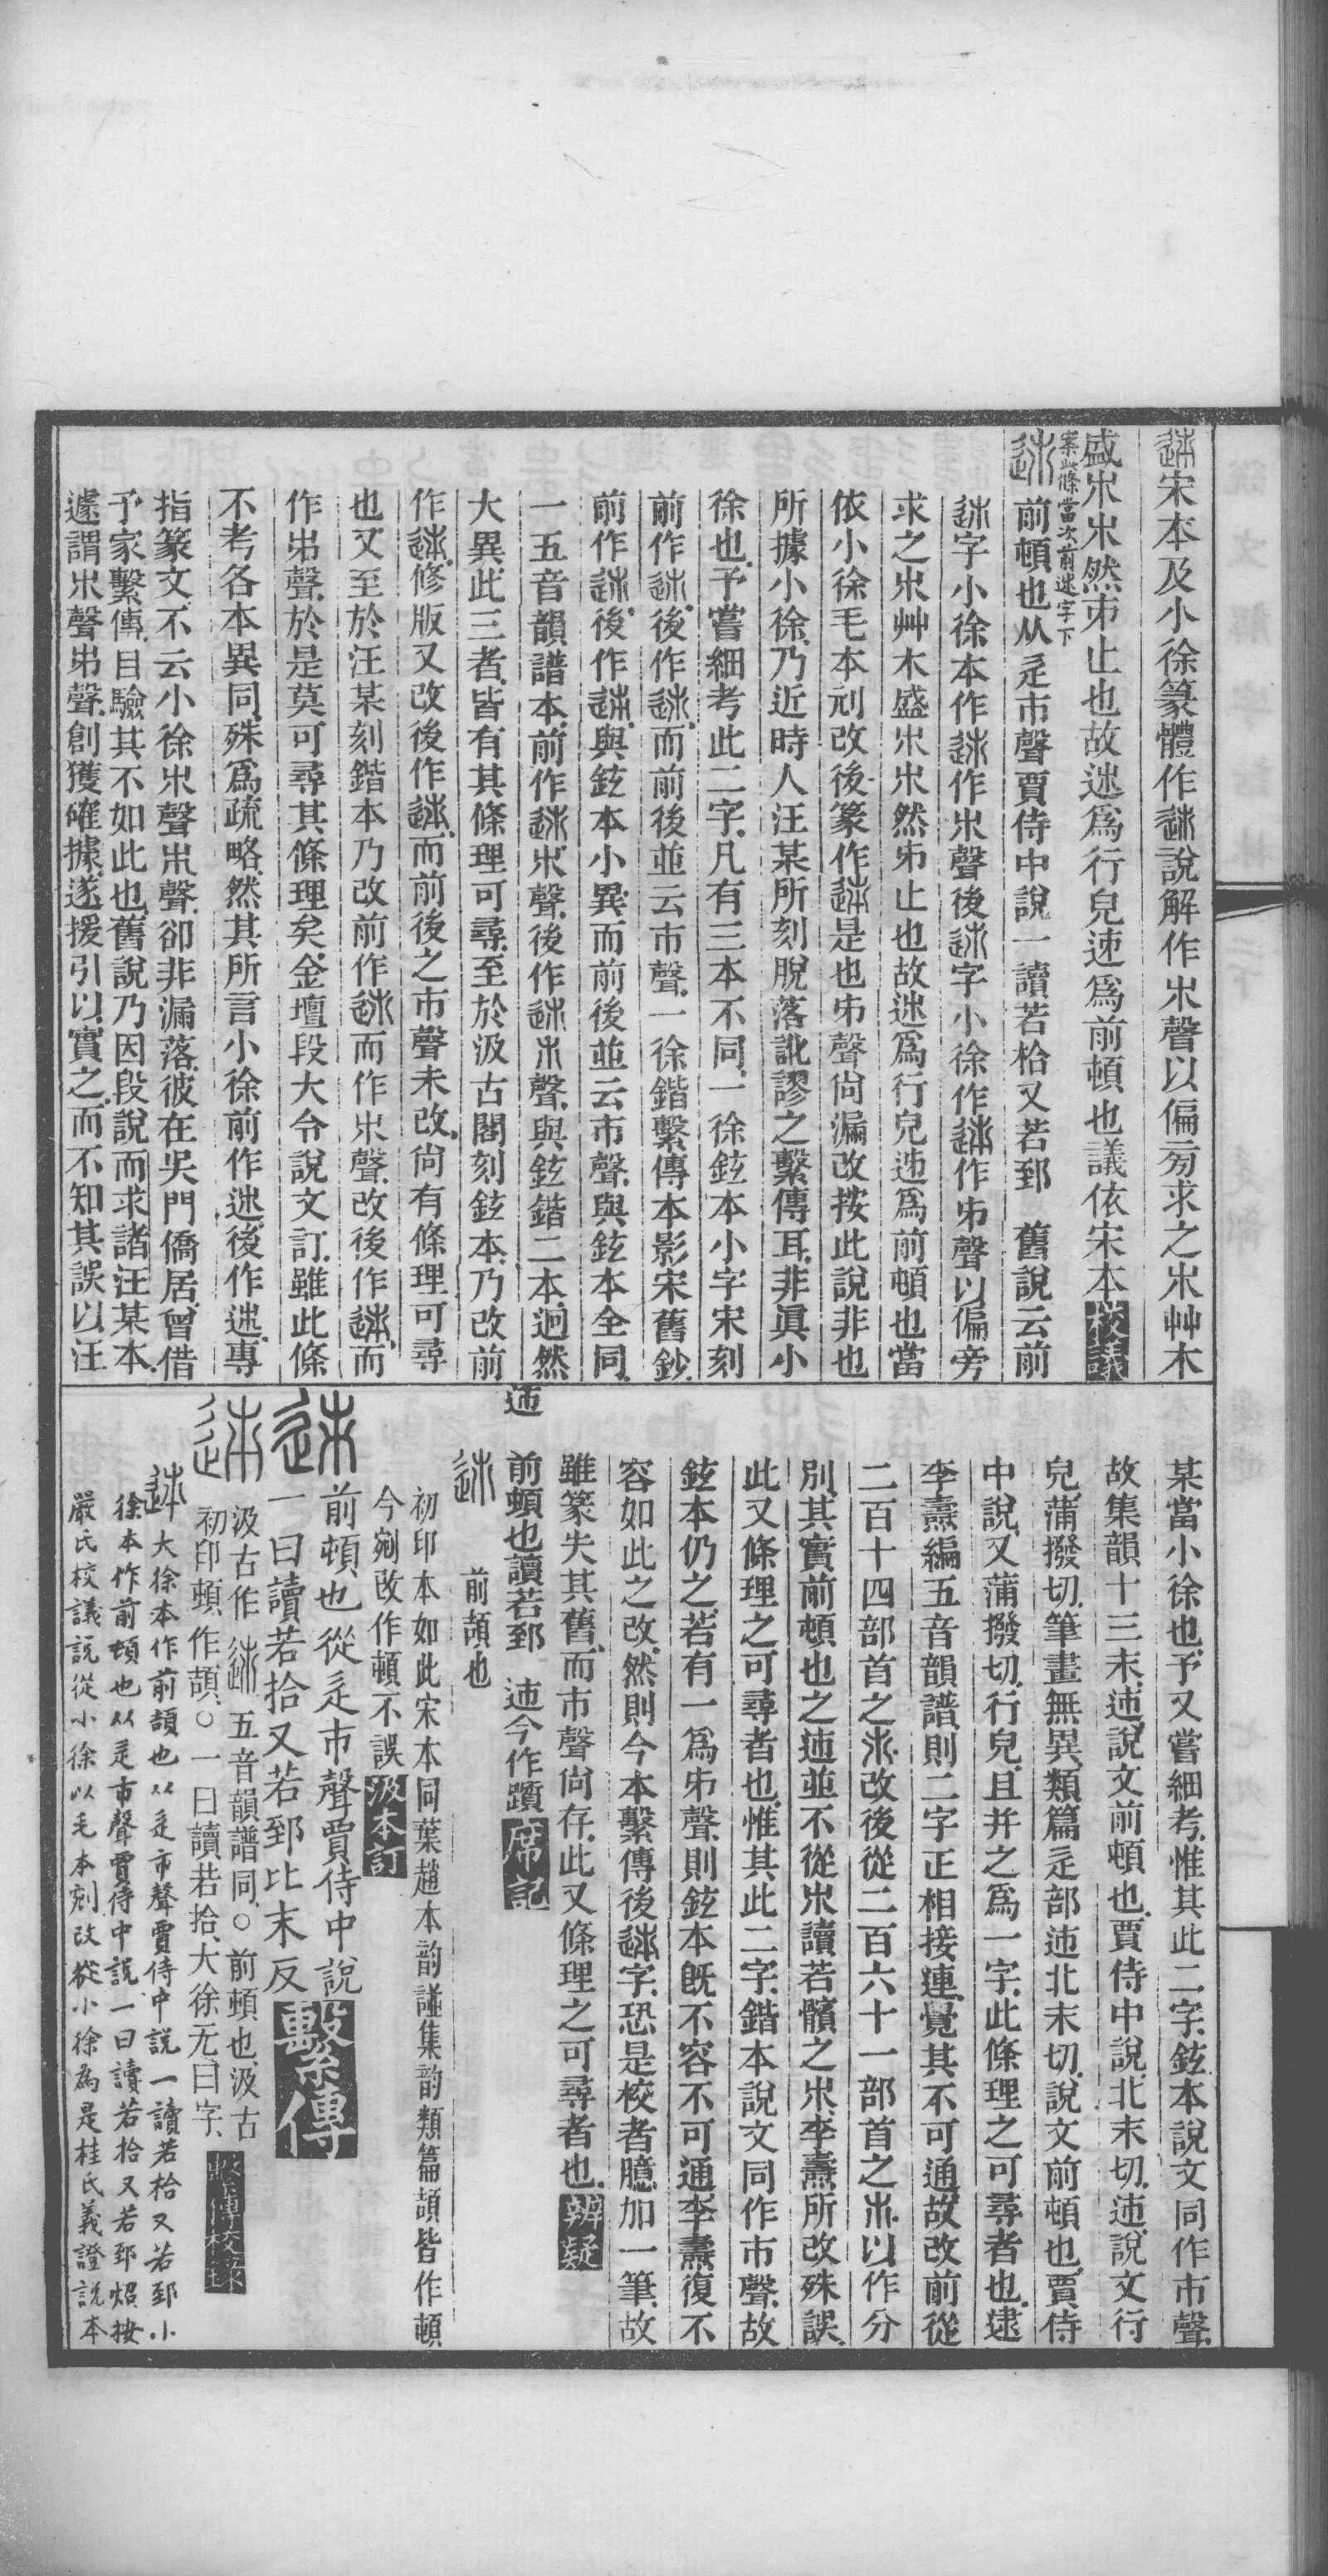 𨒪宋本及小徐篆體作𨒪說解作𣎵聲以偏㫄求之𣎵艸木
盛𣎵𣎵然𠂔止也故迷爲行皃迊爲前頓也議依宋本校議
案此條當次前迷字下
𨒪前頓也从辵市聲賈侍中說一讀若枱又若郅　舊說云前
𨒪字小徐本作𨒪作𣎵聲後𨒪字小徐作𨒪作𠂔聲以偏旁
求之𣎵艸木盛𣎵𣎵然𠂔止也故迷爲行皃迊爲前頓也當
依小徐毛本刓改後篆作𨒪是也𠂔聲尙漏改按此說非也
所據小徐乃近時人汪某所刻脫落訛謬之繫傳耳非眞小
徐也予嘗細考此二字凡有三本不同一徐鉉本小字宋刻
前作𨒪後作𨒪而前後並云市聲一徐鍇繫傳本影宋舊鈔
前作𨒪後作𨒪與鉉本小異而前後並云市聲與鉉本全同
一五音韻譜本前作𨒪𣎵聲後作𨒪𣎵聲與鉉鍇二本迥然
大異此三者皆有其條理可尋至於汲古閣刻鉉本乃改前
作𨒪修版又改後作𨒪而前後之市聲未改尙有條理可尋
也又至於汪某刻鍇本乃改前作𨒪而作𣎵聲改後作𨒪而
作𠂔聲於是莫可尋其條理矣金壇段大令說文訂雖此條
不考各本異同殊爲疏略然其所言小徐前作迷後作迷專
指篆文不云小徐𣎵聲𣎵聲卻非漏落彼在吳門僑居曾借
予家繫傳目驗其不如此也舊說乃因段說而求諸汪某本
遽謂𣎵聲𠂔聲創獲確據遂援引以實之而不知其誤以汪
某當小徐也予又嘗細考惟其此二字鉉本說文同作市聲
故集韻十三末迊說文前頓也賈侍中說北末切迊說文行
皃蒲撥切筆畫無異類篇辵部迊北末切說文前頓也賈侍
中說又蒲撥切行皃且并之爲一字此條理之可尋者也逮
李燾編五音韻譜則二字正相接連覺其不可通故改前從
二百十四部首之𣎵改後從二百六十一部首之𣎵以作分
別其實前頓也之迊並不從𣎵讀若髕之𣎵李燾所改殊誤
此又條理之可尋者也惟其此二字鍇本說文同作市聲故
鉉本仍之若有一爲𠂔聲則鉉本旣不容不可通李燾復不
容如此之改然則今本繫傳後𨒪字恐是校者臆加一筆故
雖篆失其舊而市聲尙存此又條理之可尋者也辨疑
迊前頓也讀若郅　迊今作躓席記
𨒪　前頡也
初印本如此宋本同葉趙本韵譜集韵類篇頡皆作頓
今剜改作頓不誤汲本訂
𨒪前頓也從辵市聲賈侍中說
一曰讀若拾又若郅比末反繫傳
𨒪汲古作𨒪五音韻譜同○前頓也汲古
初印頓作頡○一曰讀若拾大徐无曰字繫傳校錄
𨒪大徐本作前頡也从辵市聲賈侍中說一讀若枱又若郅小
徐本作前頓也从辵市聲賈侍中說一曰讀若拾又若郅炤按
嚴氏校議說從小徐以毛本剜改從小徐為是桂氏義證說本